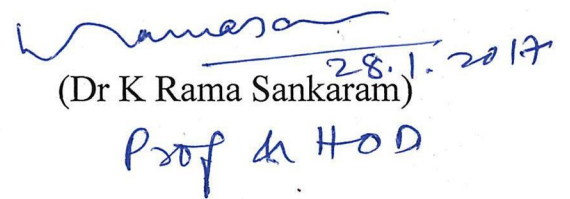 28.1.2017
(Dr K Rama Sankaram)
Prof & HOD